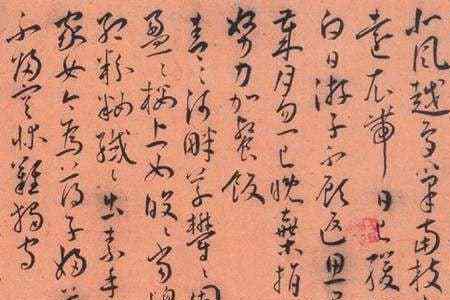 北風越鳥巢南枝
遠衣帶日已緩
白日游子不顧返思
歲月忽已晚棄捐
努力加餐飯
青〻河畔草鬱〻園
盈〻樓上女皎〻當窗
紅粉粧纖〻出素手
家女今為蕩子婦蕩
不歸空床難獨守